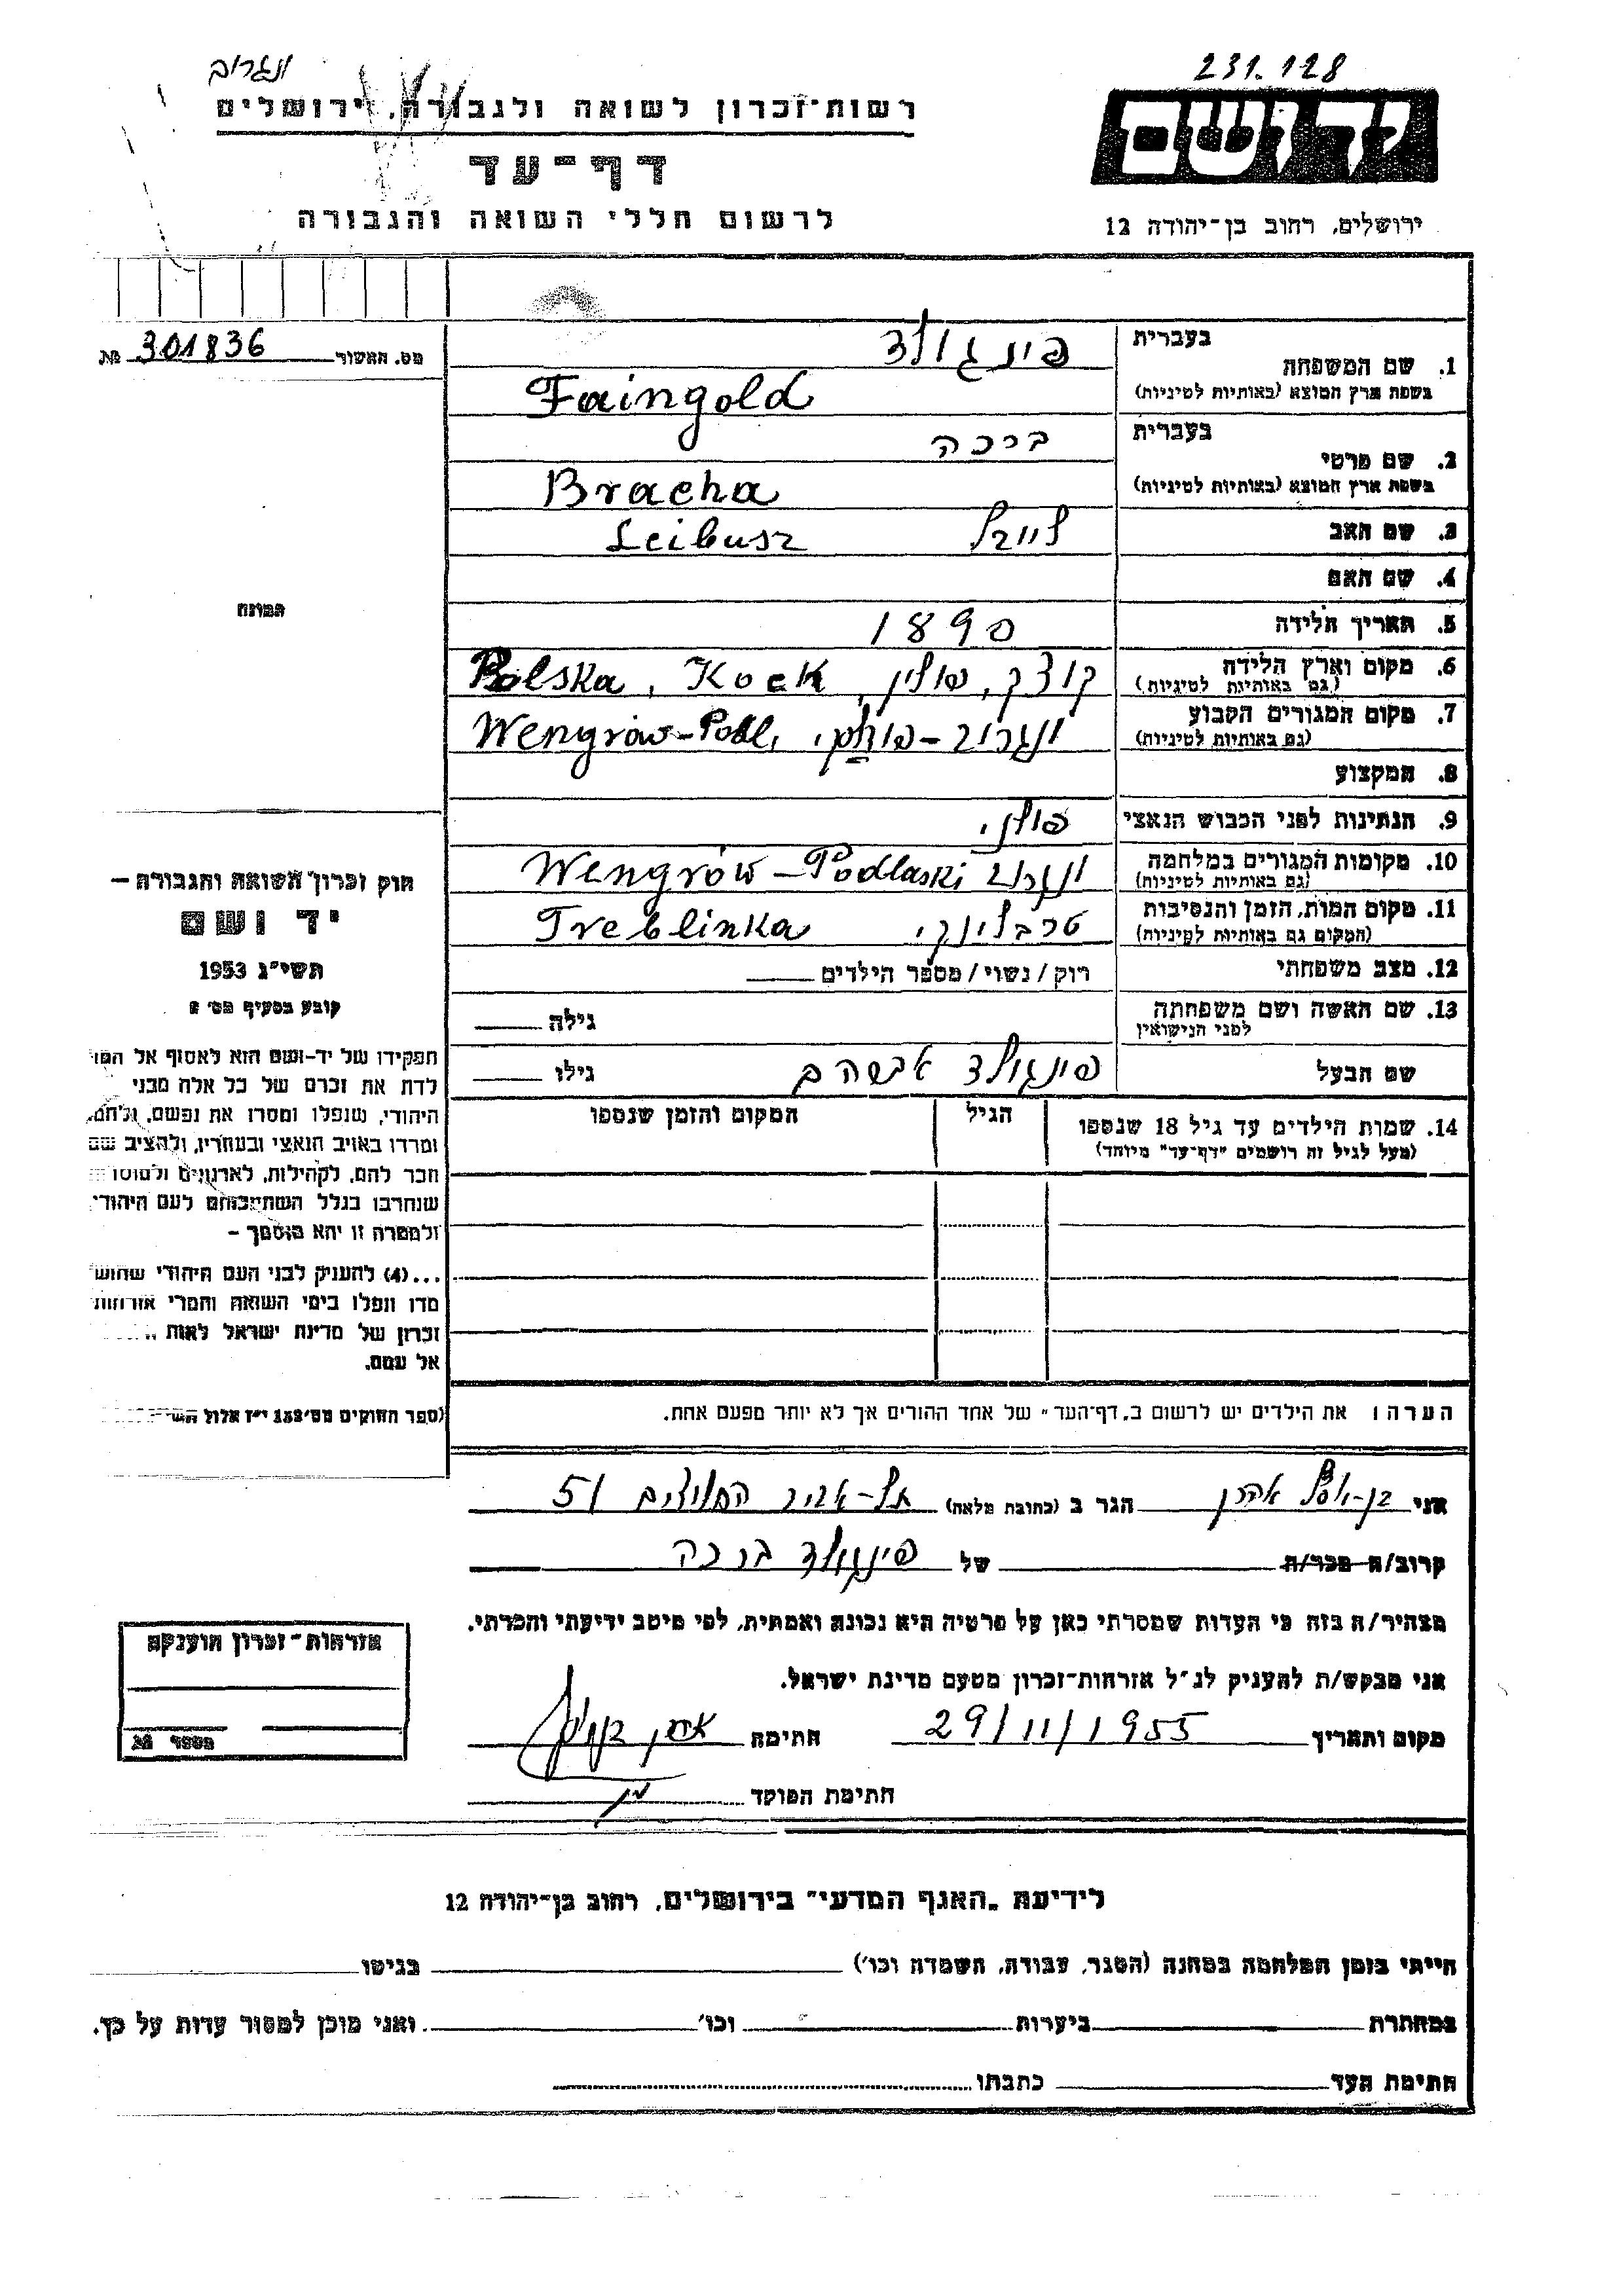 231.128
ונגרוב
יד ושם
רשות-זכרון לשואה ולגבורה, ירושלים
דף-עד
לרשום חללי השואה והגבורה
ירושלים, רחוב בן-יהודה 12
מס. האשור 301836 №
1. שם המשפחה
בעברית פינגולד
בשפת ארץ המוצא (באותיות לטיניות) Faingold
2. שם פרטי
בעברית ברכה
בשפת ארץ המוצא (באותיות לטיניות) Bracha
3. שם האב לייבל Leibusz
4. שם האם
5. תאריך הלידה 1890
6. מקום וארץ הלידה קוצק, פולין, Polska, Kock
(גם באותיות לטיניות)
7. מקום המגורים הקבוע ונגרוב - Wengrów-Podl,
(גם באותיות לטיניות)
8. המקצוע
9. הנתינות לפני הכבוש הנאצי פולני
10. מקומות המגורים במלחמה ונגרוב Wengrów-Podlaski
(גם באותיות לטיניות)
11. מקום המות, הזמן והנסיבות טרבלינקי Treblinka
(המקום גם באותיות לטיניות)
12. מצב משפחתי רוק/נשוי/מספר הילדים
13. שם האשה ושם משפחתה גילה
לפני הנישואין
שם הבעל פינגולד אברהם גילו
14. שמות הילדים עד גיל 18 שנספו הגיל המקום והזמן שנספו
(מעל לגיל זה רושמים "דף-עד" מיוחד)
הערה: את הילדים יש לרשום ב"דף-העד" של אחד ההורים אך לא יותר מפעם אחת.
התמונה
חוק זכרון השואה והגבורה —
יד ושם
תשי"ג 1953
קובע בסעיף מס' 2
תפקידו של יד-ושם הוא לאסוף אל המו
לדת את זכרם של כל אלה מבני
היהודי, שנפלו ומסרו את נפשם, נלחמ
ומרדו באויב הנאצי ובעוזריו, ולהציב שם
זכר להם, לקהילות, לארגונים ולמוסד
שנחרבו בגלל השתייכותם לעם היהודי
ולמטרה זו יהא מוסמך —
...(4) להעניק לבני העם היהודי שהוש
מדו ונפלו בימי השואה והמרי אזרחות
זכרון של מדינת ישראל לאות
אל עמם.
(ספר החוקים מס' 132 י"ז אלול
אני אהרן הגר ב (כתובת מלאה) תל-אביב החלוצים 51
קרוב/ה מכר/ה של פינגולד ברכה
מצהיר/ה בזה כי העדות שמסרתי כאן על פרטיה היא נכונה ואמתית, לפי מיטב ידיעתי והכרתי.
אני מבקש/ת להעניק לנ"ל אזרחות-זכרון מטעם מדינת ישראל.
מקום ותאריך 29/11/1955 חתימה
חתימת הפוקד
אזרחות-זכרון הוענקה
מספר №
לידיעת "האגף המדעי" בירושלים, רחוב בן-יהודה 12
הייתי בזמן המלחמה במחנה (הסגר, עבודה, השמדה וכו') בגיטו
במחתרת ביערות וכו' ואני מוכן למסור עדות על כך.
חתימת העד כתבתו